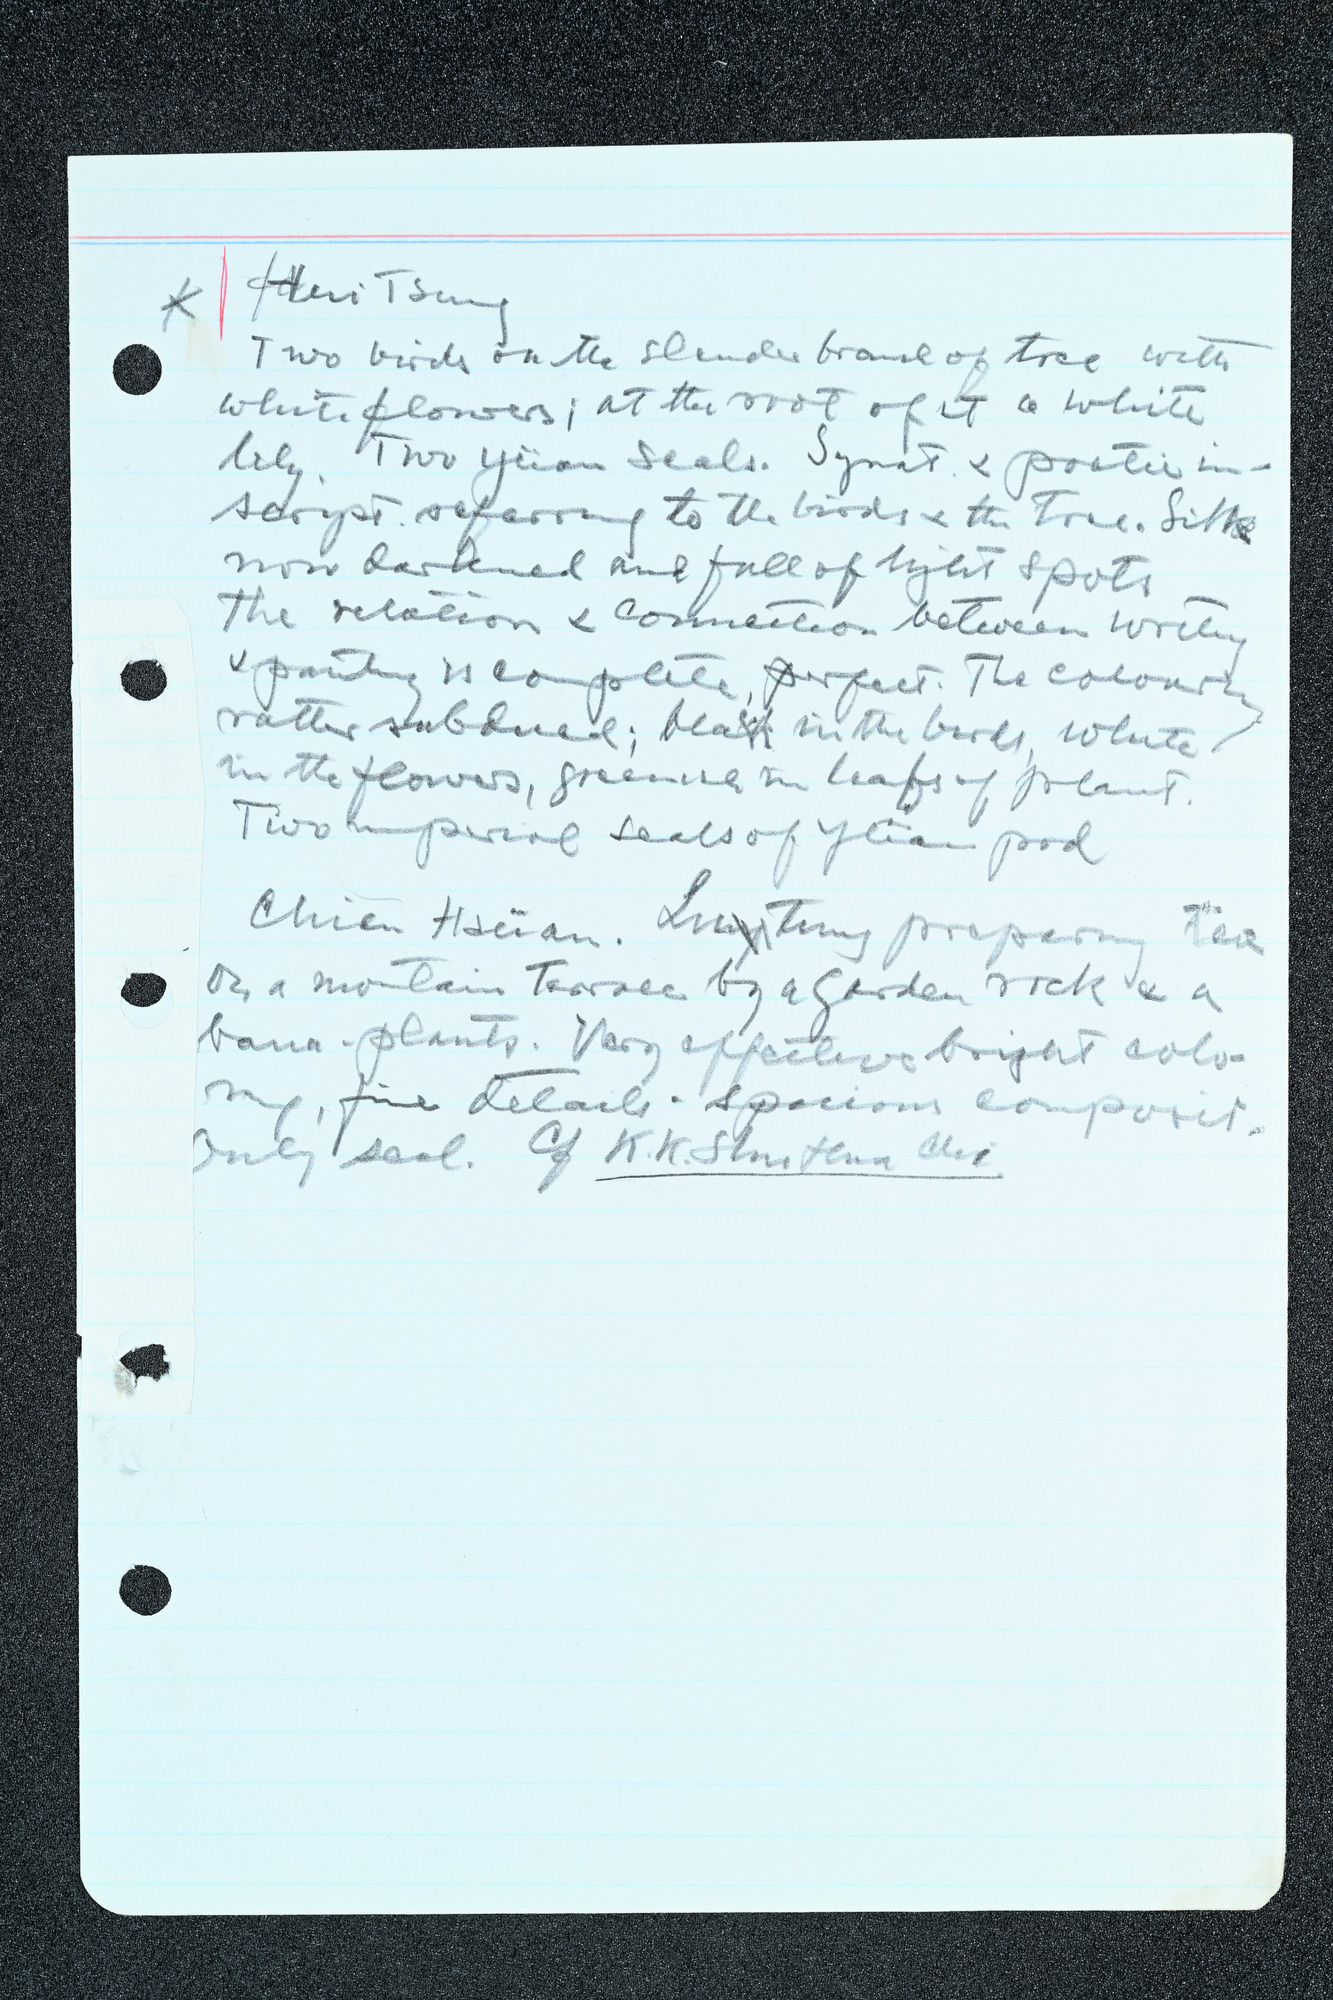 K Hui Tsung
Two birds on the slender branch of tree with
white flowers; at the root of it a white
lily. Two Yüan seals. Signat. & poetic in-
script. referring to the birds & the tree. Silk
now darkened and full of light spots
The relation & connection between writing
& painting is complete, perfect. The colouring
rather subdued; black in the birds, white
in the flowers, greenish in leafs of plant.
Two imperial seals of Yüan pod
Chien Hsüan. tung preparing tea
on a mountain terrace by a garden rock & a
bana-plants. Very effective bright colo-
ring, fine details. Spacious composit.
Only seal. Cf K.K. Shu Hua Chi